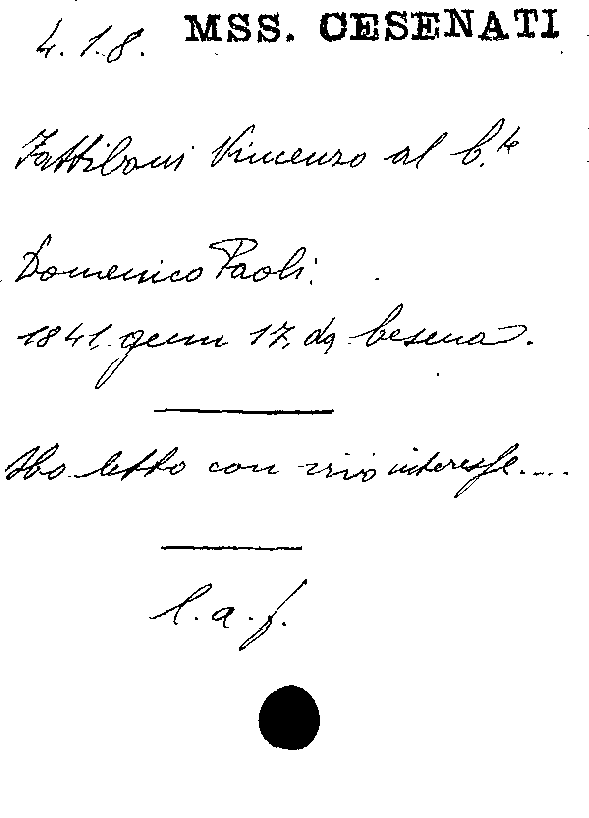 4.1.8. MSS. CESENATI
Fattiboni Vincenzo al C.te
Domenico Paoli.
1841. genn 17. da Cesena.
Ho letto con mio interesse....
l.a.f.